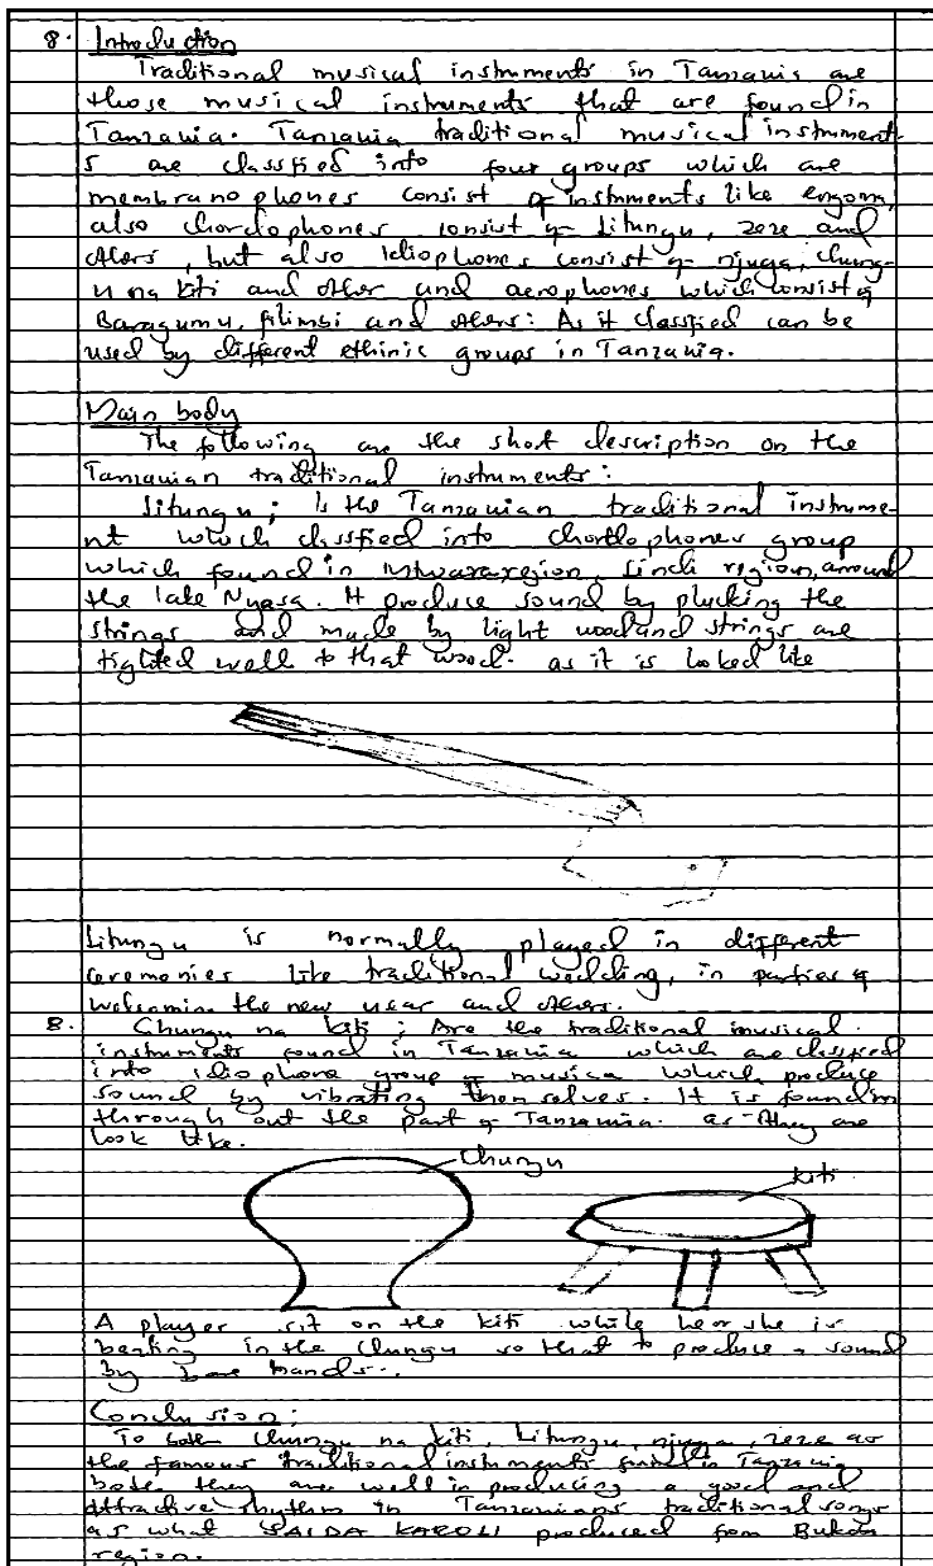 8. Introduction
Traditional musical instruments in Tanzania are
those musical instruments that are found in
Tanzania. Tanzania traditional musical instrument-
s are classfied into four groups which are
membranophones consist of instments like engoma,
also chordophones consist of Litungu, zeze and
others, but also Idiophones consist of njuga, chung-
u na kiti and other and aerophones which consist of
Baragumu, filimbi and others: As it classfied can be
used by different ethinic groups in Tanzania.
Main body
The following are the short description on the
Tanzanian traditional instruments:
Litungu; Is the Tanzanian traditional instrume-
nt which classfied into chordophones group
which found in Mtwara region, Lindi region, around
the lake Nyasa. It produce sound by plucking the
strings and made by light wood and strings are
tighted well to that wood. as it is looked like
Litungu is normally played in different
ceremonies like traditional wedding, in parties of
welcoming the new year and others.
8. Chungu na kiti; Are the traditional musical
instruments found in Tanzania which are classfied
into idiophone group of musica which produce
sound by vibrating themselves. It is found in
through out the part of Tanzania. as they are
look like.
Chungu
kiti
A player sit on the kiti while he or she is
beating in the chungu so that to produce a sound
by bare hands.
Conclusion:
To chungu na kiti, Litungu, njuga, zeze as
the famous traditional instruments found in Tanzania
both they are well in producing a good and
attractive rhythm in Tanzanians traditional songs
as what SAIDA KAROLI produced from Bukoba
region.